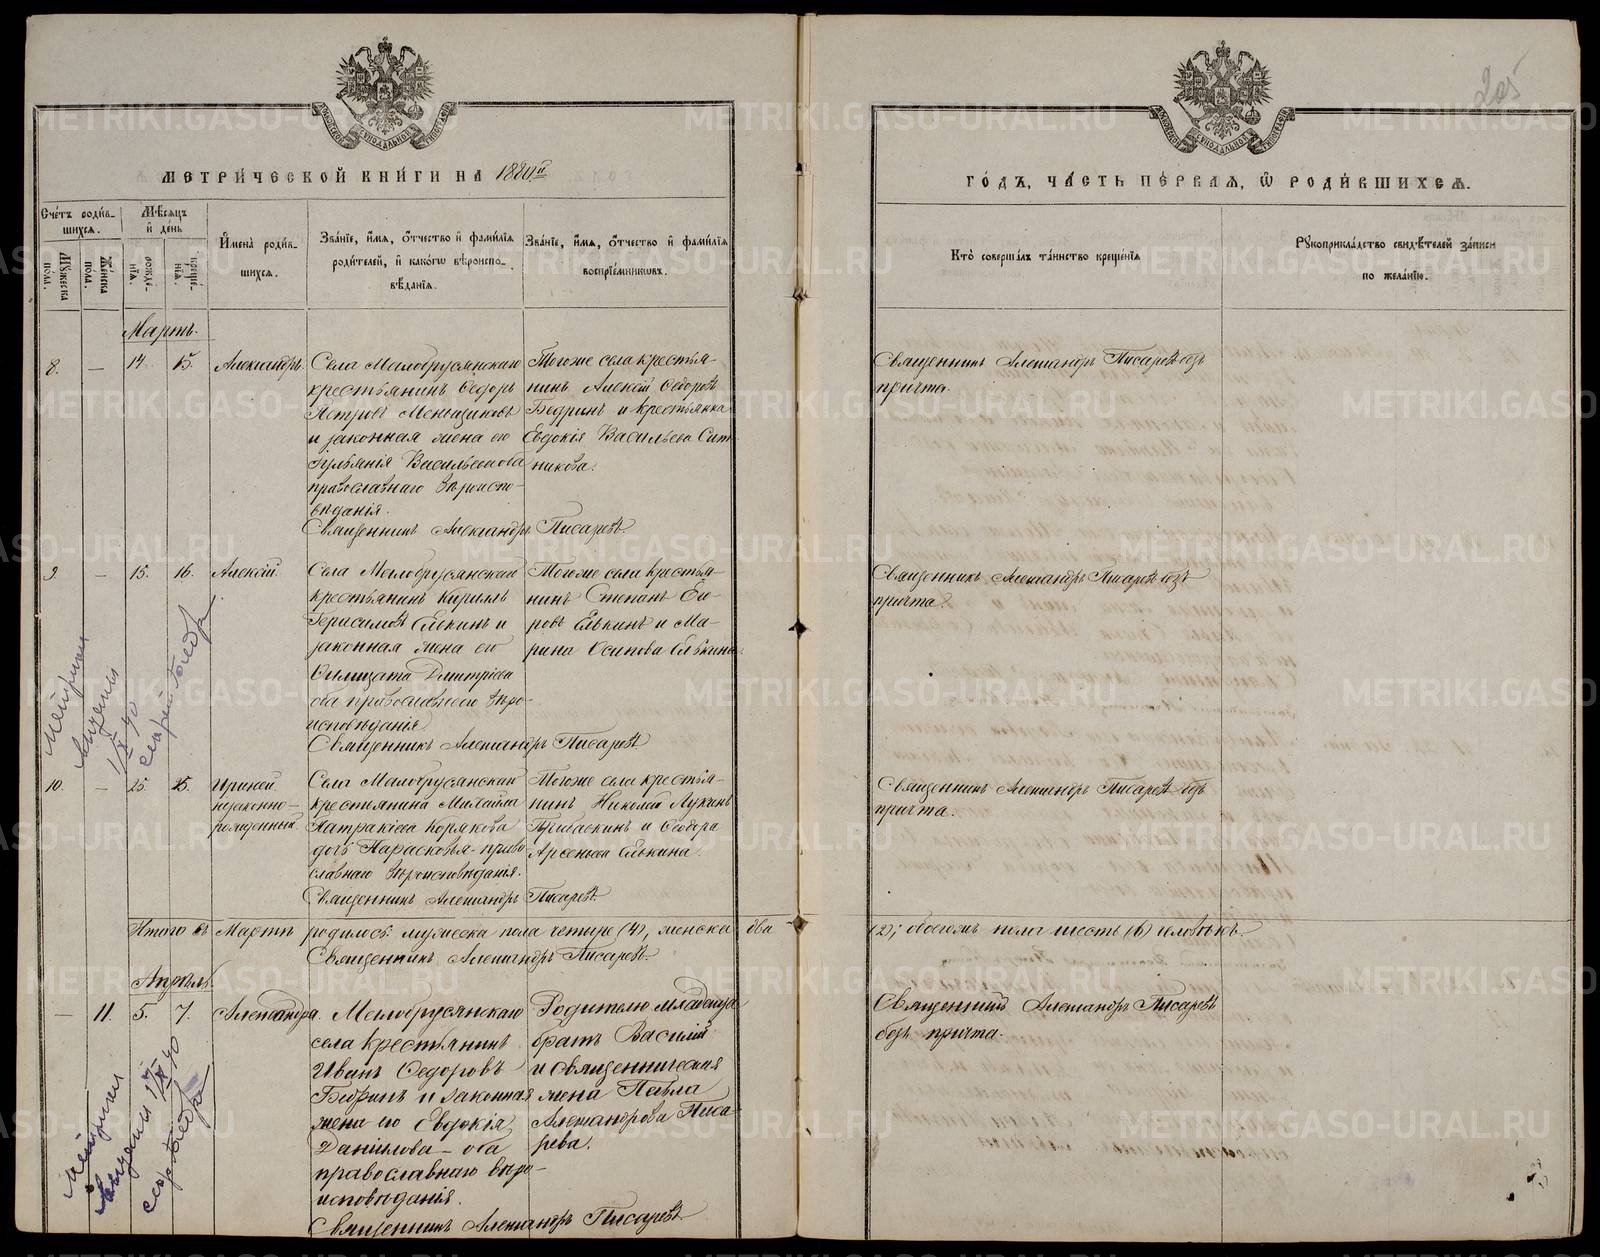 205
МЕТРИ́ЧЕСКОЙ КНИ́ГИ НА 1880й
ГО́ДЪ, ЧА́СТЬ ПЕ́РВАѦ, Ѿ РОДИ́ВШИХСѦ.
Сче́тъ роди́в-
шихсѧ.
Мѣ́сѧцъ
и҆ де́нь
Мꙋ́жеска
пол.
Же́нска
пол.
рожде́-
нїѧ.
креще́-
нїѧ.
И҆мена̀ роди́в-
шихсѧ.
Зва́нїе, и҆́мѧ, ѻ҆́тчество и҆ фами́лїѧ
роди́телей, и҆ како́гѡ вѣроиспо-
вѣ́данїѧ.
Зва́нїе, и҆́мѧ, ѻ҆́тчество и҆ фами́лїѧ
воспрїе́мникѡвъ.
Кто̀ соверша́лъ та́инство креще́нїѧ
Рꙋкоприкла́дство свидѣ́телей за́писи
по жела́нїю.
Мартъ.
8. — 14. 15. Александръ.
Села Малобрусянскаго
крестьянинъ Ѳедоръ
Петровъ Меньщиковъ
и законная жена его
Іульянія Васильевнова
православнаго вѣроиспо-
вѣданія.
Священникъ Александръ Писаревъ.
Тогоже села крестья-
нинъ Алексѣй Ѳедоровъ
Бедринъ и крестьянка
Евдокія Васильева Сит-
никова.
Священникъ Александръ Писаревъ безъ
причта.
9. — 15. 16. Алексѣй.
Села Малобрусянскаго
крестьянинъ Кириллъ
Герасимовъ Елькинъ и
законная жена его
Дмитріева
оба православнаго вѣро-
исповѣданія
Священникъ Александръ Писаревъ
Тогоже села крестья-
нинъ Степанъ Его-
ровъ Елькинъ и Ма-
рина Осипова Елькина.
Священникъ Александръ Писаревъ безъ
причта.
10. — 25. 25. Ириней
незаконно-
рожденный
Села Малобрусянскаго
крестьянина Михаила
Патракіева Корякова
дочь Парасковья - право-
славнаго вѣроисповѣданія.
Священникъ Александръ Писаревъ.
Тогоже села крестья-
нинъ Николай Лукинъ
и Ѳеодора
Арсеньева Елькина.
Священникъ Александръ Писаревъ безъ
причта.
Итого въ Мартѣ родилось: мужеска пола четыре (4), женска два (2); обоего пола шесть (6) человѣкъ.
Священникъ Александръ Писаревъ.
Апрѣль.
— 11. 5. 7. Александра.
Малобрусянскаго
села крестьянинъ
Иванъ Ѳедоровъ
Бедринъ и законная
жена его Евдокія
Данилова - оба
православнаго вѣро-
исповѣданія.
Священникъ Александръ Писаревъ
Родителю младенца
братъ Василій
и священническая
жена Павла
Александрова Писа-
рева.
Священникъ Александръ Писаревъ
безъ причта.
METRIKI.GASO-URAL.RU